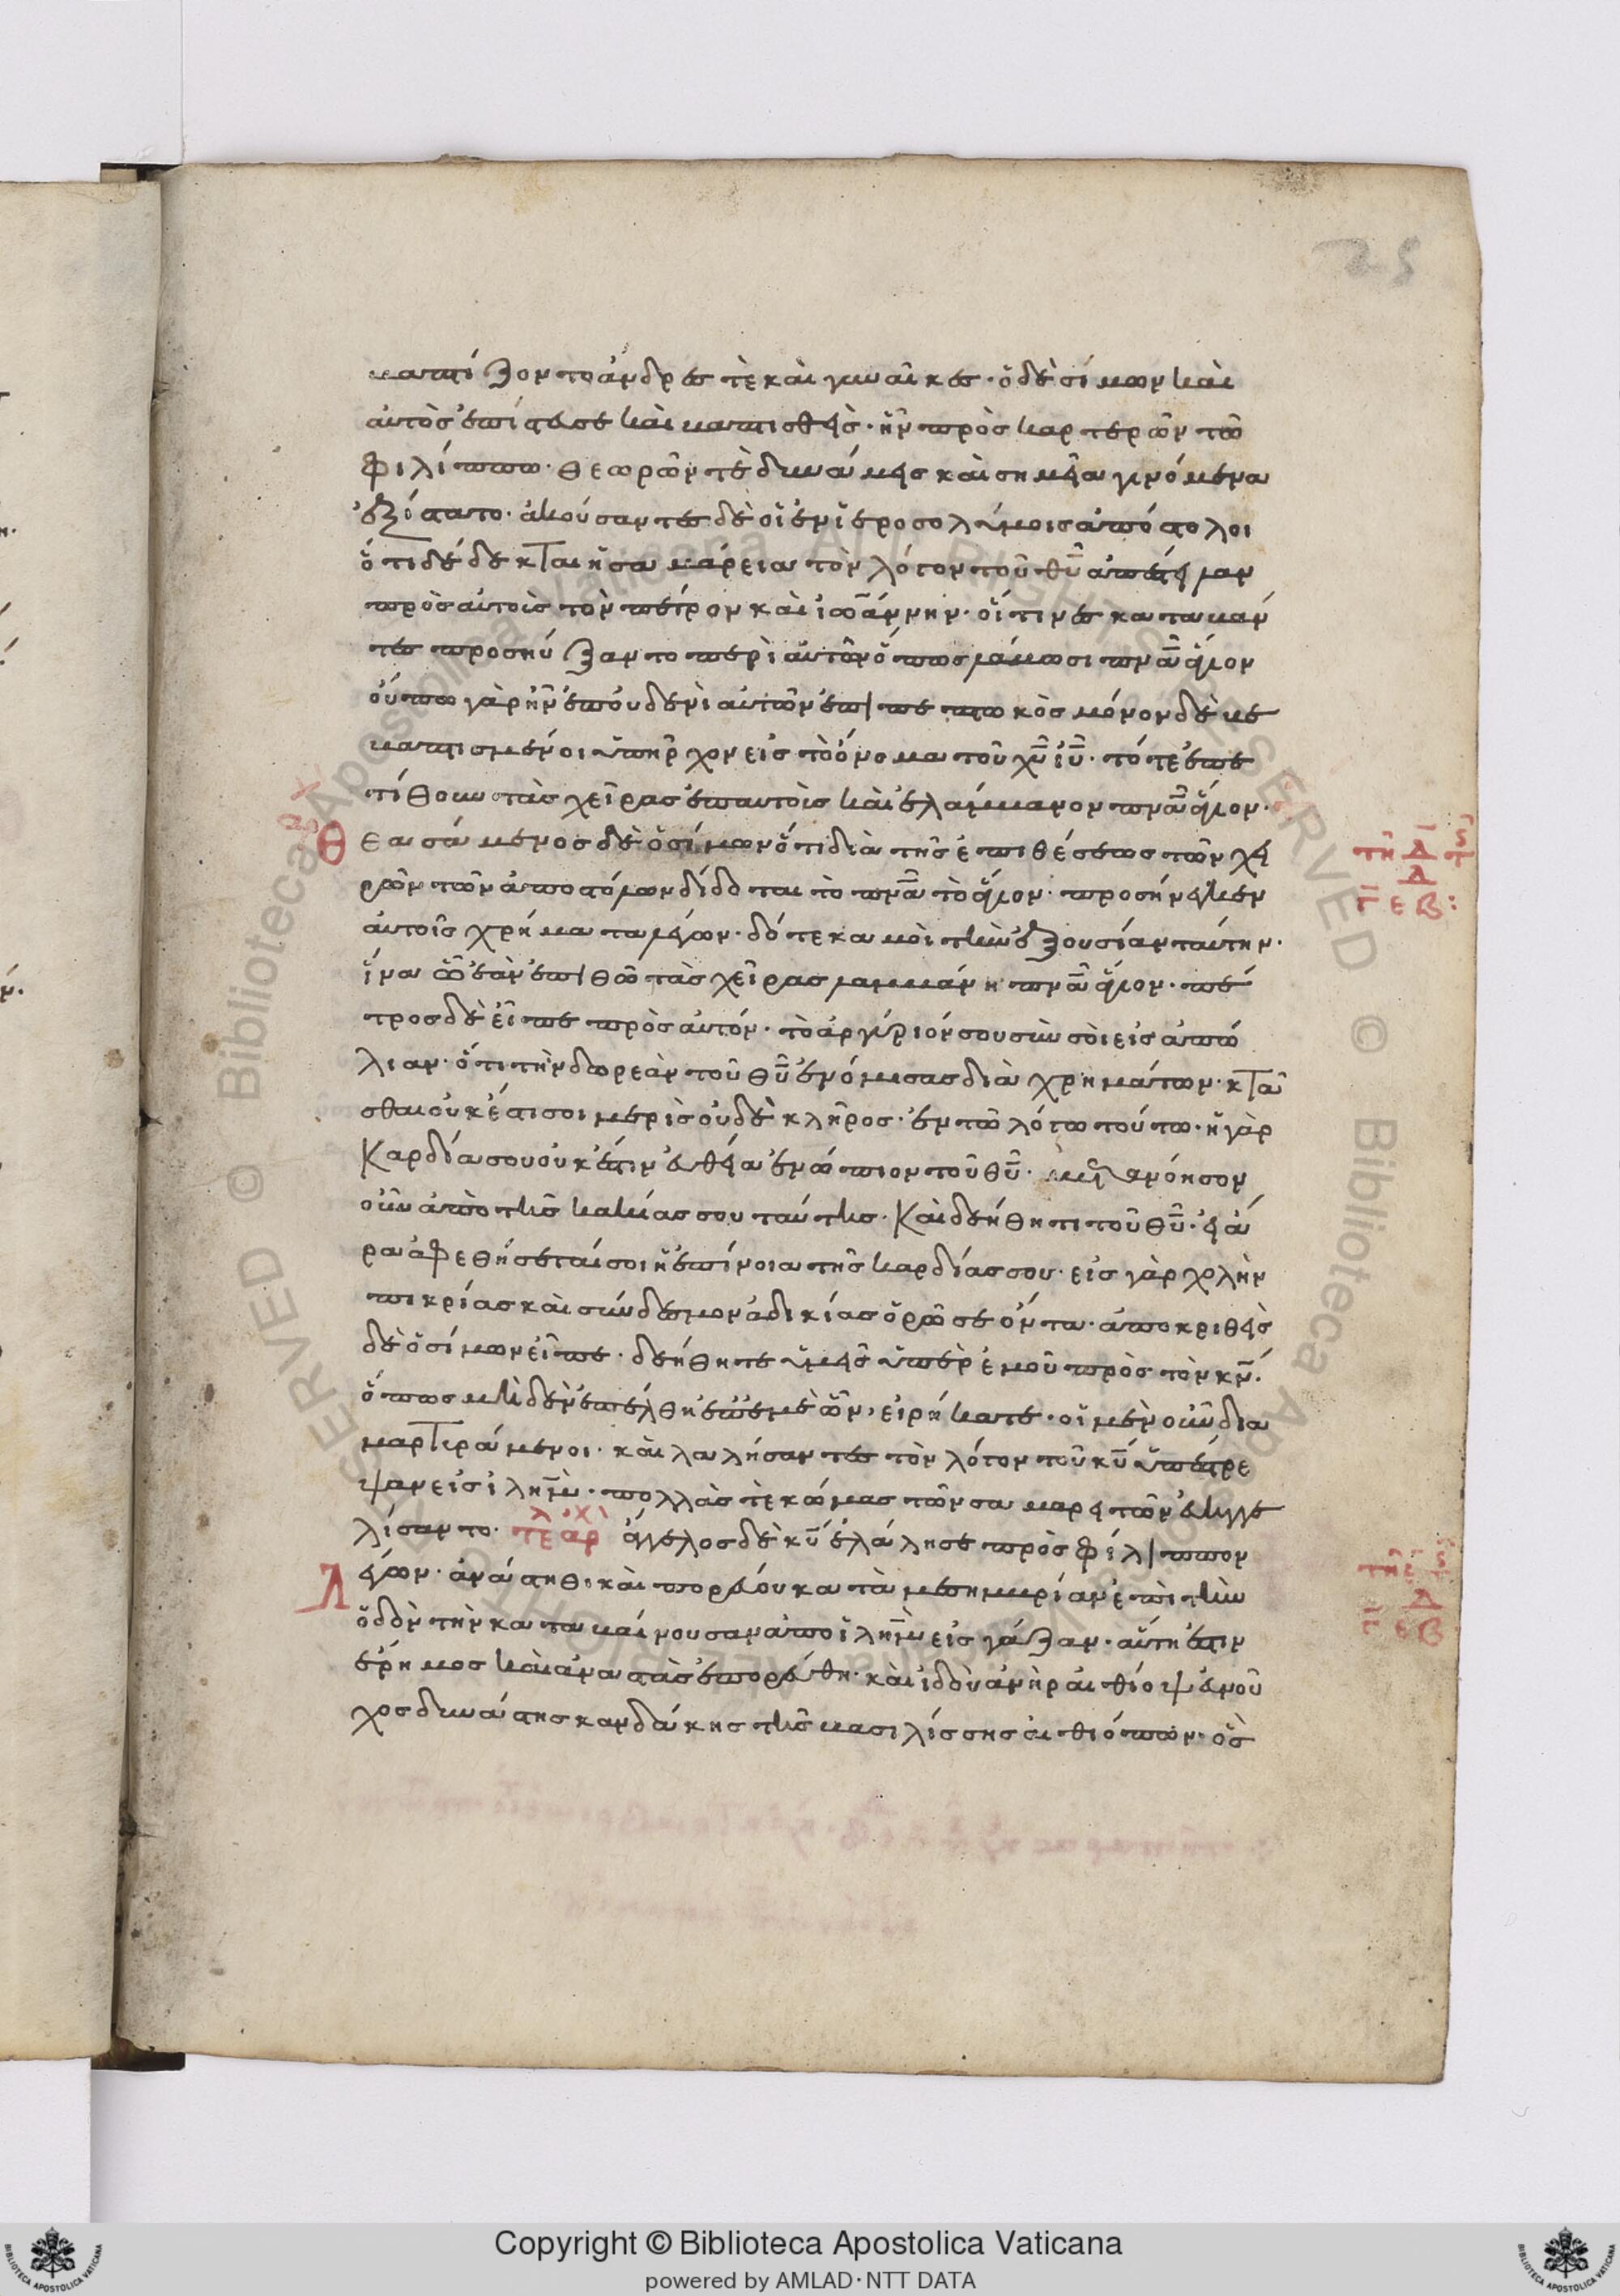 25
βαπτίζοντο ἄνδρες τὲ καὶ γυναῖκες· ὁ δὲ σίμων καὶ
αὐτὸς ἐπίστευσε καὶ βαπτισθεὶς· ἦν προσκαρτερῶν τῶ
φιλίππω· θεωρῶν τὲ δυνάμεις καὶ σημεῖα γινόμενα
ἐξίστατο· ἀκούσαντες δὲ οἱ ἐν ἱεροσολύμοις ἀπόστολοι
ὅτι δέδεκται ἡ σαμάρεια τὸν λόγον τοῦ θῦ ἀπέστειλαν
πρὸς αὐτοὺς τὸν πέτρον καὶ ἰωάννην· οἵτινες καταβάν
τες προσηύξαντο περὶ αὐτῶν ὅπως λάβωσι πνᾶ ἅγιον
οὔπω γὰρ ἦν ἐπ' οὐδενὶ αὐτῶν ἐπιπεπτωκὸς μόνον δὲ βε
βαπτισμένοι ὑπῆρχον εἰς τὸ ὄνομα τοῦ χῦ ἰῦ· τότε ἐπε
τίθουν τὰς χεῖρας ἐπ' αὐτοὺς καὶ ἐλάμβανον πνᾶ ἅγιον·
Θεασάμενος δὲ ὁ σίμων ὅτι διὰ τῆς ἐπιθέσεως τῶν χει
ρῶν τῶν ἀποστόλων δίδοται τὸ πνᾶ τὸ ἅγιον· προσήνεγκεν
αὐτοῖς χρήματα λέγων· δότε κἀμοὶ τὴν ἐξουσίαν ταύτην·
ἵνα ὧ ἐὰν ἐπιθῶ τὰς χεῖρας λαμβάνη πνᾶ ἅγιον· πέ
τρος δὲ εἶπε πρὸς αὐτόν· τὸ ἀργύριόν σου σὺν σοὶ εἰς ἀπώ
λιαν· ὅτι τὴν δωρεὰν τοῦ θῦ ἐνόμισας διὰ χρημάτων· κτᾶ
σθαι οὐκ ἔστι σοι μερὶς οὐδὲ κλῆρος· ἐν τῶ λόγω τούτω· ἡ γὰρ
καρδία σου οὐκ ἔστιν εὐθεῖα ἐνώπιον τοῦ θῦ· μετανόησον
οὖν ἀπὸ τῆς κακίας σου ταύτης· Καὶ δεήθητι τοῦ θῦ· εἰ ἄ
ρα ἀφεθήσεταί σοι ἡ ἐπίνοια τῆς καρδίας σου· εἰς γὰρ χολὴν
πικρίας καὶ σύνδεσμον ἀδικίας ὁρῶ σε ὄντα· ἀποκριθεὶς
δὲ ὁ σίμων εἶπε· δεήθητε ὑμεῖς ὑπὲρ ἐμοῦ πρὸς τὸν κν·
ὅπως μηδὲν ἐπέλθη ἐπ' ἐμὲ ὧν εἰρήκατε· οἱ μὲν οὖν δια
μαρτυράμενοι· καὶ λαλήσαντες τὸν λόγον τοῦ κυ ὑπέστρε
ψαν εἰς ἰλημ· πολλάς τε κώμας τῶν σαμαρειτῶν εὐηγγε
λίσαντο· τελ αρχ ἄγγελος δὲ κυ ἐλάλησε πρὸς φίλιππον
λέγων· ἀνάστηθι καὶ πορεύου κατὰ μεσημβρίαν ἐπὶ τὴν
ὁδὸν τὴν καταβαίνουσαν ἀπὸ ἱλημ εἰς γάζαν· αὕτη ἐστιν
ἔρημος καὶ ἀναστὰς ἐπορεύθη· καὶ ἰδοὺ ἀνὴρ αἰθίοψ εὐνοῦ
χος δυνάστης κανδάκης τῆς βασιλίσσης αἰθιόπων· ὃς